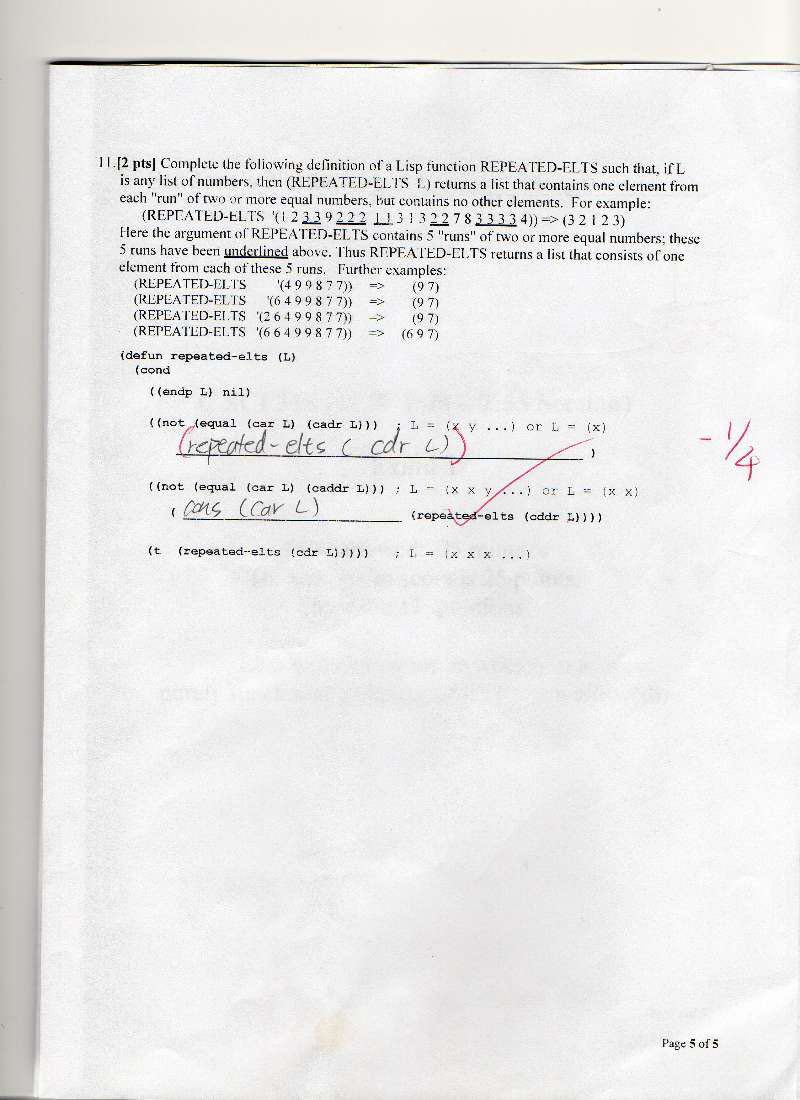 11.[2 pts] Complete the following definition of a Lisp function REPEATED-ELTS such that, if L
is any list of numbers, then (REPEATED-ELTS L) returns a list that contains one element from
each "run" of two or more equal numbers, but contains no other elements. For example:
(REPEATED-ELTS '(1 2 3 3 9 2 2 2 1 1 3 1 3 2 2 7 8 3 3 3 3 4)) => (3 2 1 2 3)
Here the argument of REPEATED-ELTS contains 5 "runs" of two or more equal numbers; these
5 runs have been underlined above. Thus REPEATED-ELTS returns a list that consists of one
element from each of these 5 runs. Further examples:
(REPEATED-ELTS '(4 9 9 8 7 7)) => (9 7)
(REPEATED-ELTS '(6 4 9 9 8 7 7)) => (9 7)
(REPEATED-ELTS '(2 6 4 9 9 8 7 7)) => (9 7)
(REPEATED-ELTS '(6 6 4 9 9 8 7 7)) => (6 9 7)
(defun repeated-elts (L)
(cond
((endp L) nil)
((not (equal (car L) (cadr L))) ; L = (x y ...) or L = (x)
(repeated-elts ( cdr L)) )
- 1/4
((not (equal (car L) (caddr L))) ; L = (x x y ...) or L = (x x)
( cons (car L) (repeated-elts (cddr L))))
(t (repeated-elts (cdr L))))) ; L = (x x x ...)
Page 5 of 5